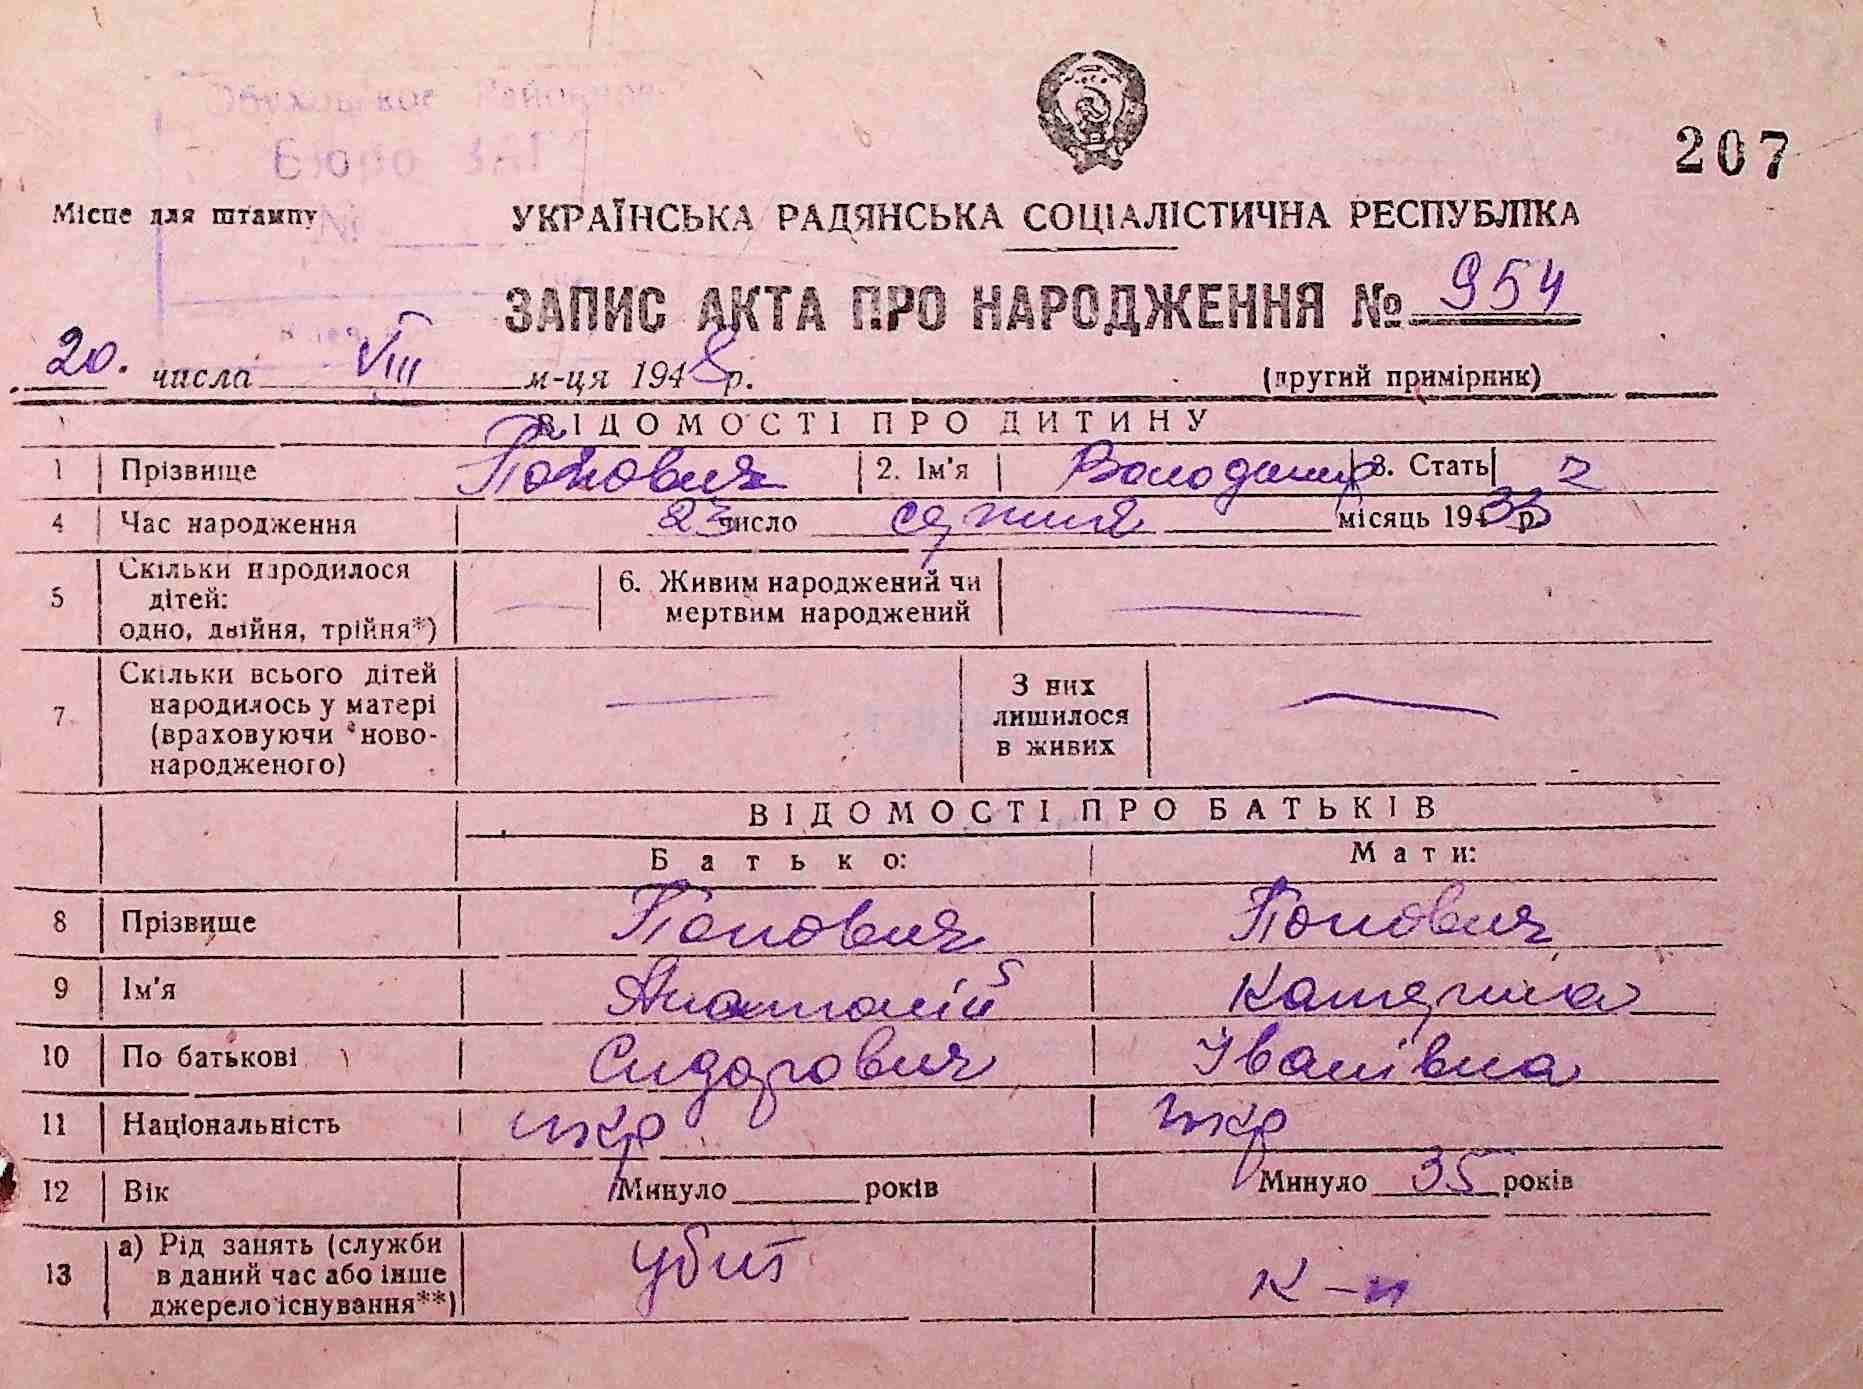 207
Бюро ЗАГ
Місце для штампу
№
УКРАЇНСЬКА РАДЯНСЬКА СОЦІАЛІСТИЧНА РЕСПУБЛІКА
ЗАПИС АКТА ПРО НАРОДЖЕННЯ № 954
20. числа VIII м-ця 1948 р. (другий примірник)
ВІДОМОСТІ ПРО ДИТИНУ
1 Прізвище Попович 2. Ім'я Володимир 3. Стать ч
4 Час народження 23 число серпня місяць 1933 р.
5 Скільки народилося дітей: одно, двійня, трійня*) — 6. Живим народжений чи мертвим народжений —
7 Скільки всього дітей народилось у матері (враховуючи новонародженого) — З них лишилося в живих —
ВІДОМОСТІ ПРО БАТЬКІВ
Батько: Мати:
8 Прізвище Попович Попович
9 Ім'я Анатолій Катерина
10 По батькові Сидорович Іванівна
11 Національність укр укр
12 Вік Минуло років Минуло 35 років
13 а) Рід занять (служби в даний час або інше джерело існування**) убит к-ц